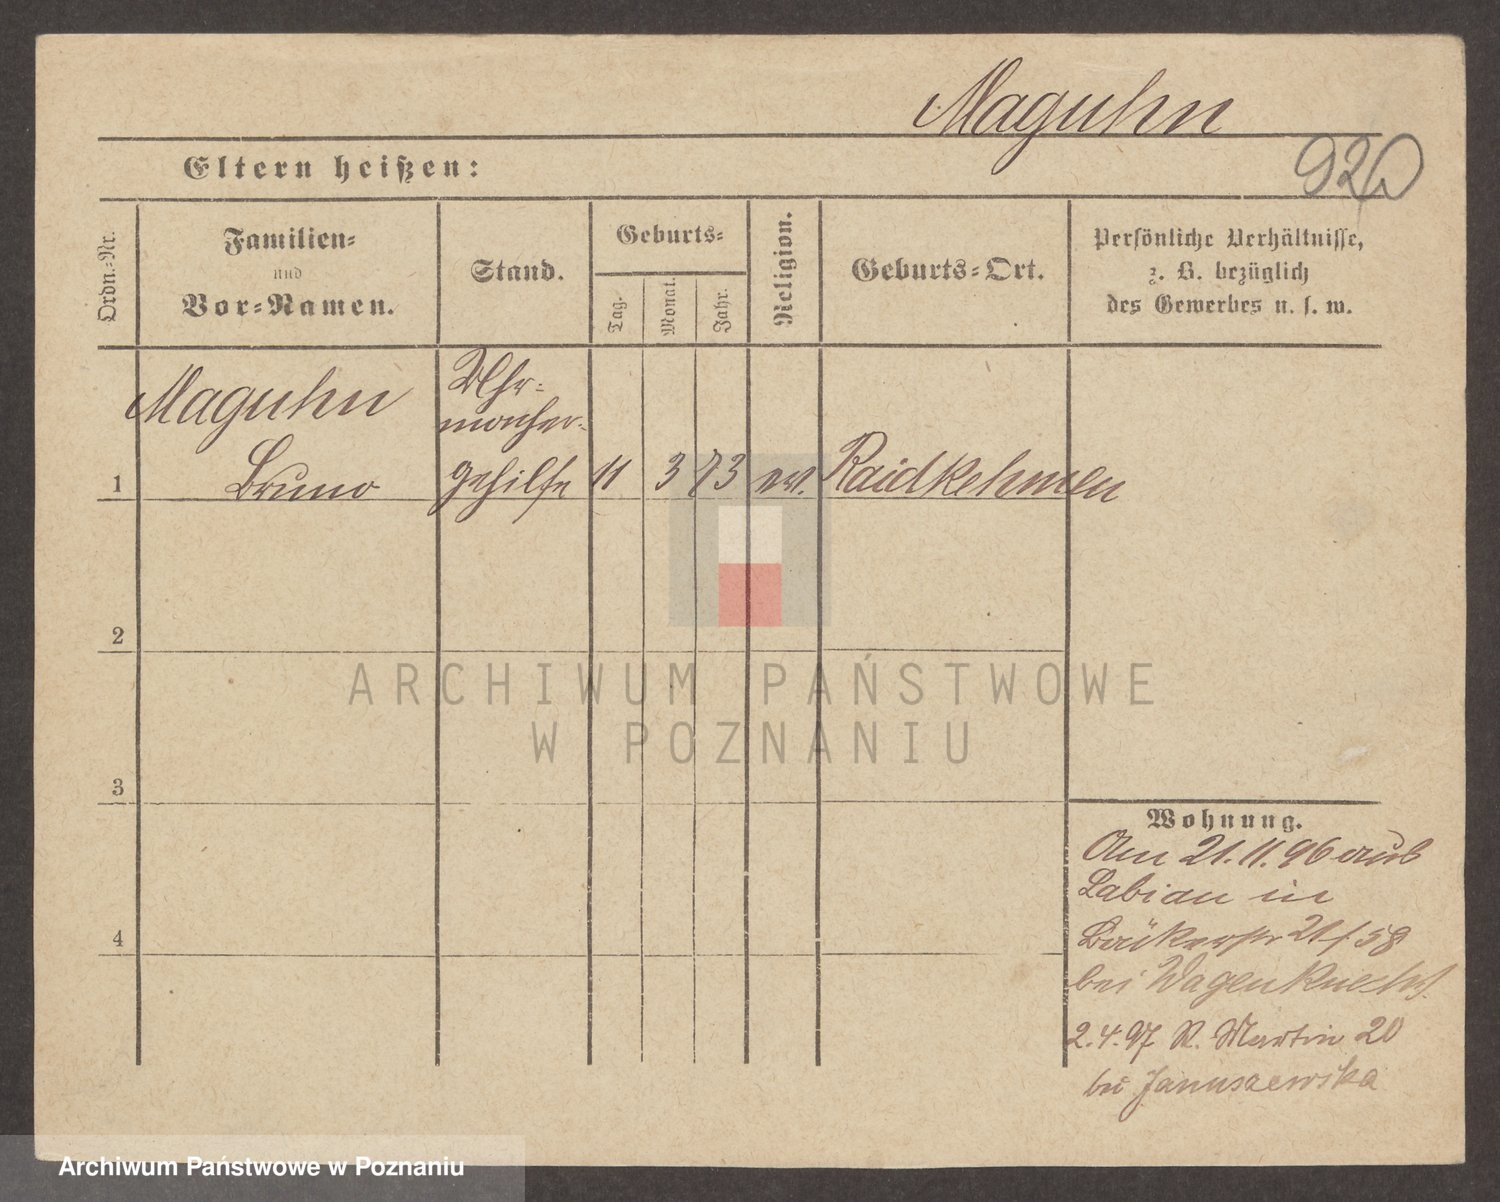 Maguhn
920
Eltern heißen:
Ordn.-Nr.
Familien-
und
Vor-Namen.
Stand.
Geburts-
Tag.
Monat.
Jahr.
Religion.
Geburts-Ort.
Persönliche Verhältnisse,
z. B. bezüglich
des Gewerbes u. s. w.
Maguhn
Bruno
Uhr-
macher-
gehilfe
1
11 3 73 ev. Raidkehmen
2
3
4
Wohnung.
Am 21.11.96 aus
Labiau in
Bäckerstr 21/58
bei Wagenknecht.
2.4.97 St. Martin 20
bei Januszewska
ARCHIWUM PAŃSTWOWE
W POZNANIU
Archiwum Państwowe w Poznaniu